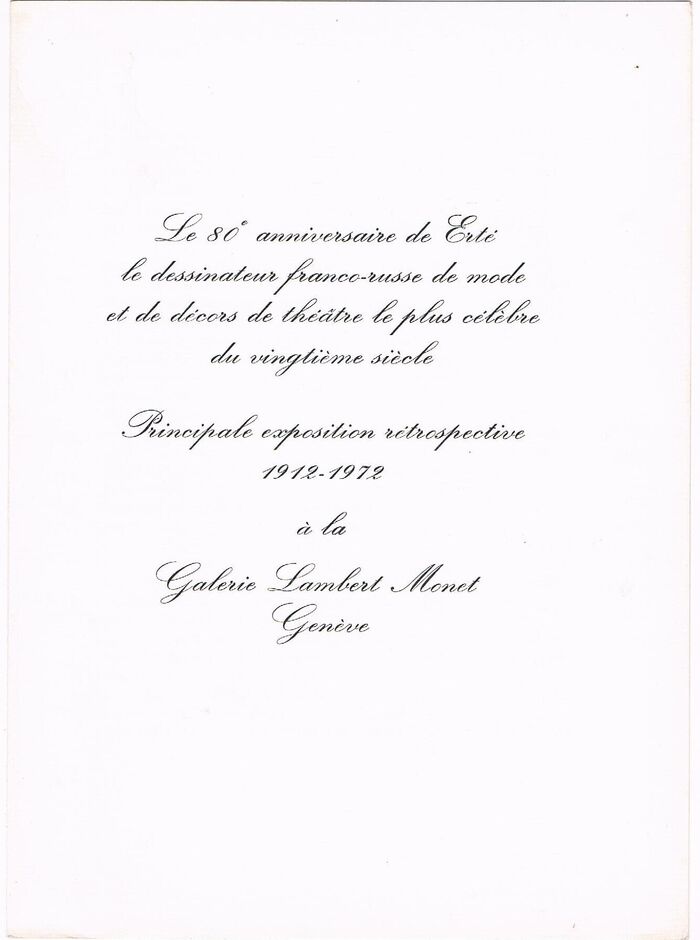 Le 80e anniversaire de Erté
le dessinateur franco-russe de mode
et de décors de théâtre le plus célèbre
du vingtième siècle
Principale exposition rétrospective
1912-1972
à la
Galerie Lambert Monet
Genève